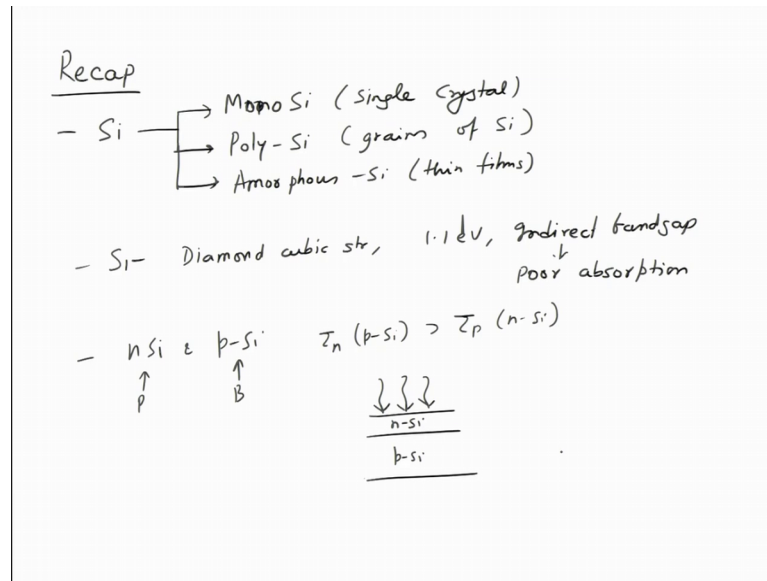 Recap
- Si → Mono Si (single crystal)
→ Poly-Si (grains of Si)
→ Amorphous -Si (thin films)
- Si- Diamond cubic str, 1.1 eV, Indirect bandgap
↓
poor absorption
- n Si & p-Si τn (p-Si) > τp (n-Si)
↑ ↑
P B
n-Si
p-Si